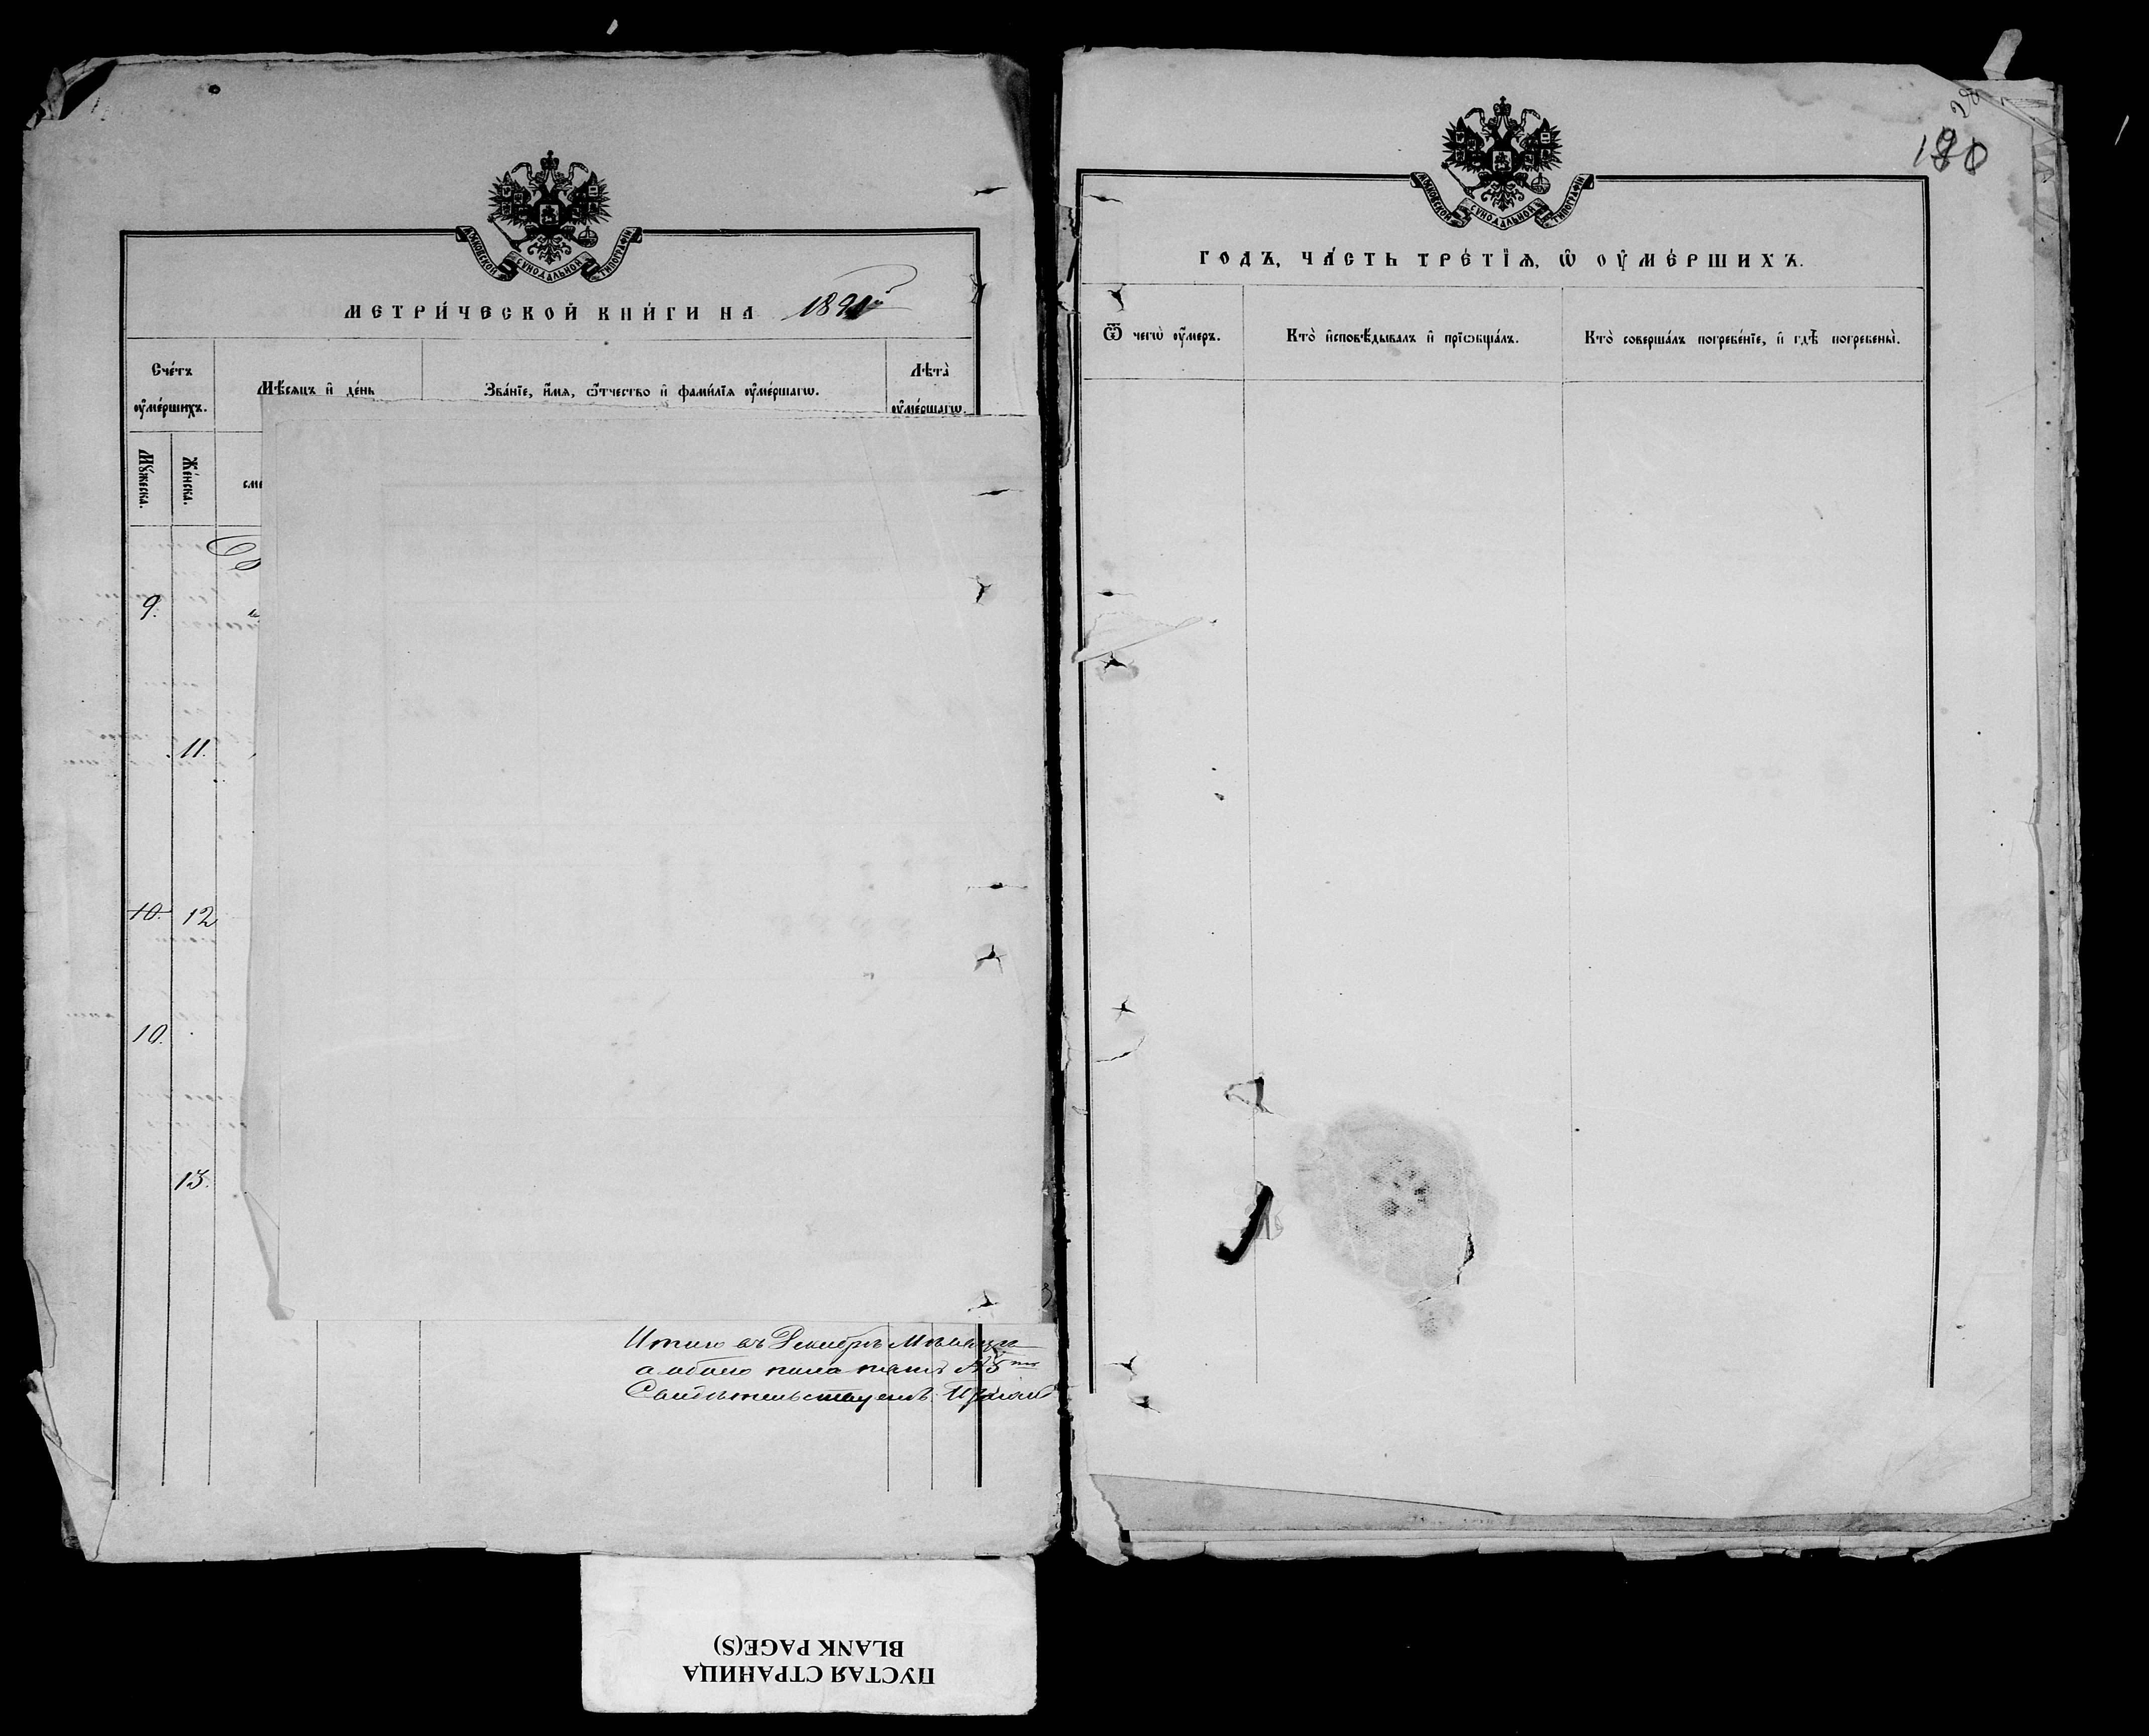 МОСКОВСКОЙ СѴНОДАЛЬНОЙ ТИПОГРАФІИ
МЕТРИ́ЧЕСКОЙ КНИ́ГИ НА 1891й
Сче́тъ оу҆ме́ршихъ.
Мѣ́сяцъ и҆ де́нь
Зва́нїе, и҆́мѧ, ѻ҆́тчество и҆ фами́лїѧ оу҆ме́ршагѡ.
Лѣ́та оу҆ме́ршагѡ.
Мꙋ́жеска.
Же́нска.
сме
9.
11.
10. 12
10.
13.
Итого въ Декабрѣ Мѣсяцѣ
обоего пола
МОСКОВСКОЙ СѴНОДАЛЬНОЙ ТИПОГРАФІИ
180
28
ГО́ДЪ, ЧА́СТЬ ТРЕ́ТЇѦ, Ѡ҆ ОУ҆МЕ́РШИХЪ.
Ѿ чегѡ̀ оу҆́меръ.
Кто̀ и҆сповѣ́дывалъ и҆ прїѡбща́лъ.
Кто̀ соверша́лъ погребе́нїе, и҆ гдѣ̀ погребены̀.
ПУСТАЯ СТРАНИЦА
BLANK PAGE(S)